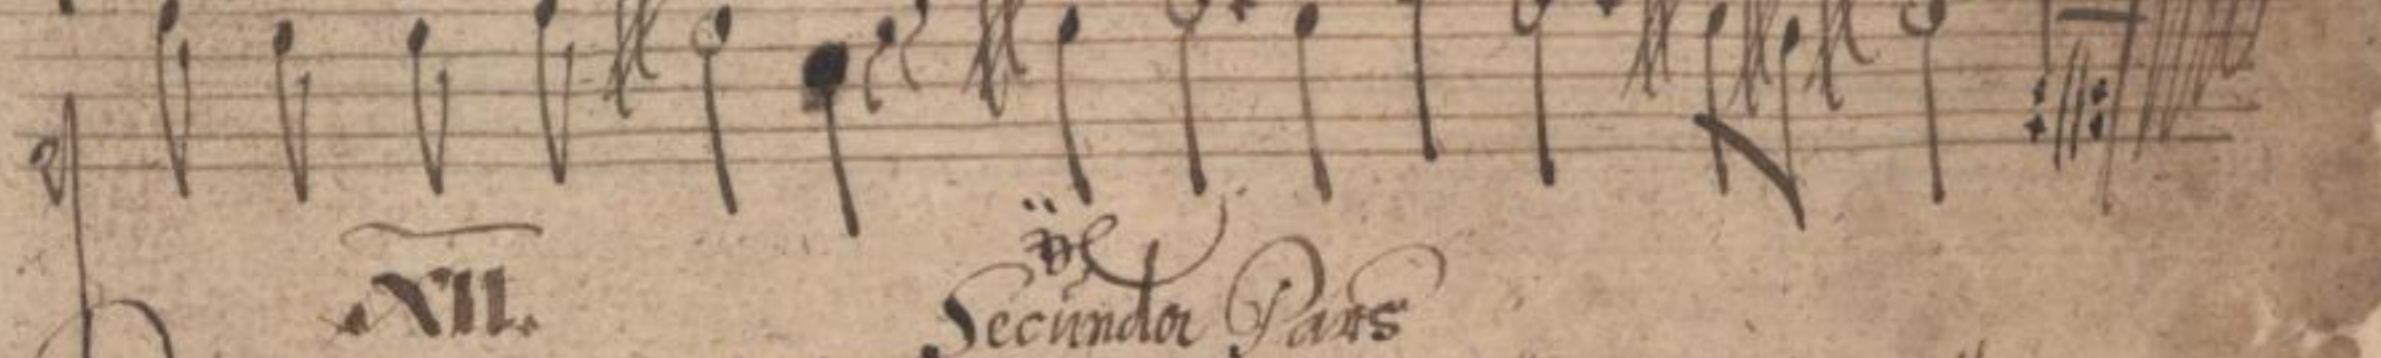 .XII.
Secunda Pars